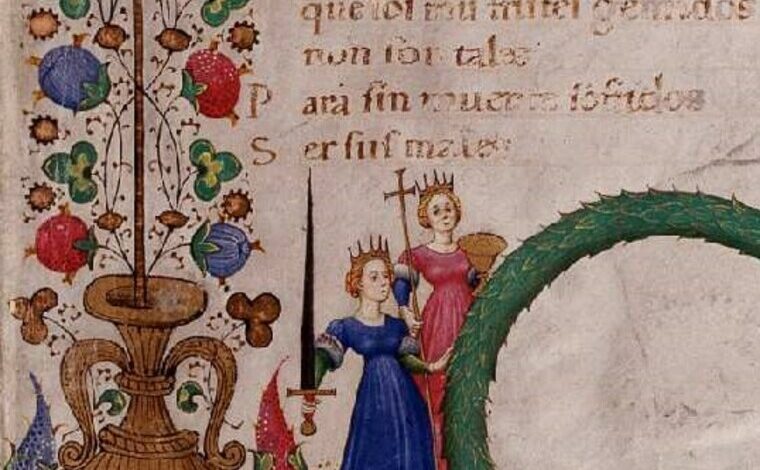 que sol gemidos
non son tales
Para sin muerte sofridos
Ser sus males